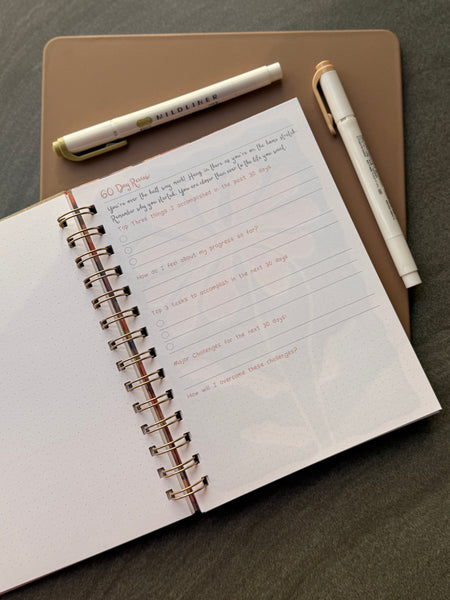 MILDLINER
60 Day Review
You're over the half way mark! Hang in there as you're on the home stretch.
Remember why you started. You are closer than ever to the life you want.
Top Three things I accomplished in the past 30 days
How do I feel about my progress so far?
Top 3 tasks to accomplish in the next 30 days
Major Challenges for the next 30 days:
How will I overcome these challenges?